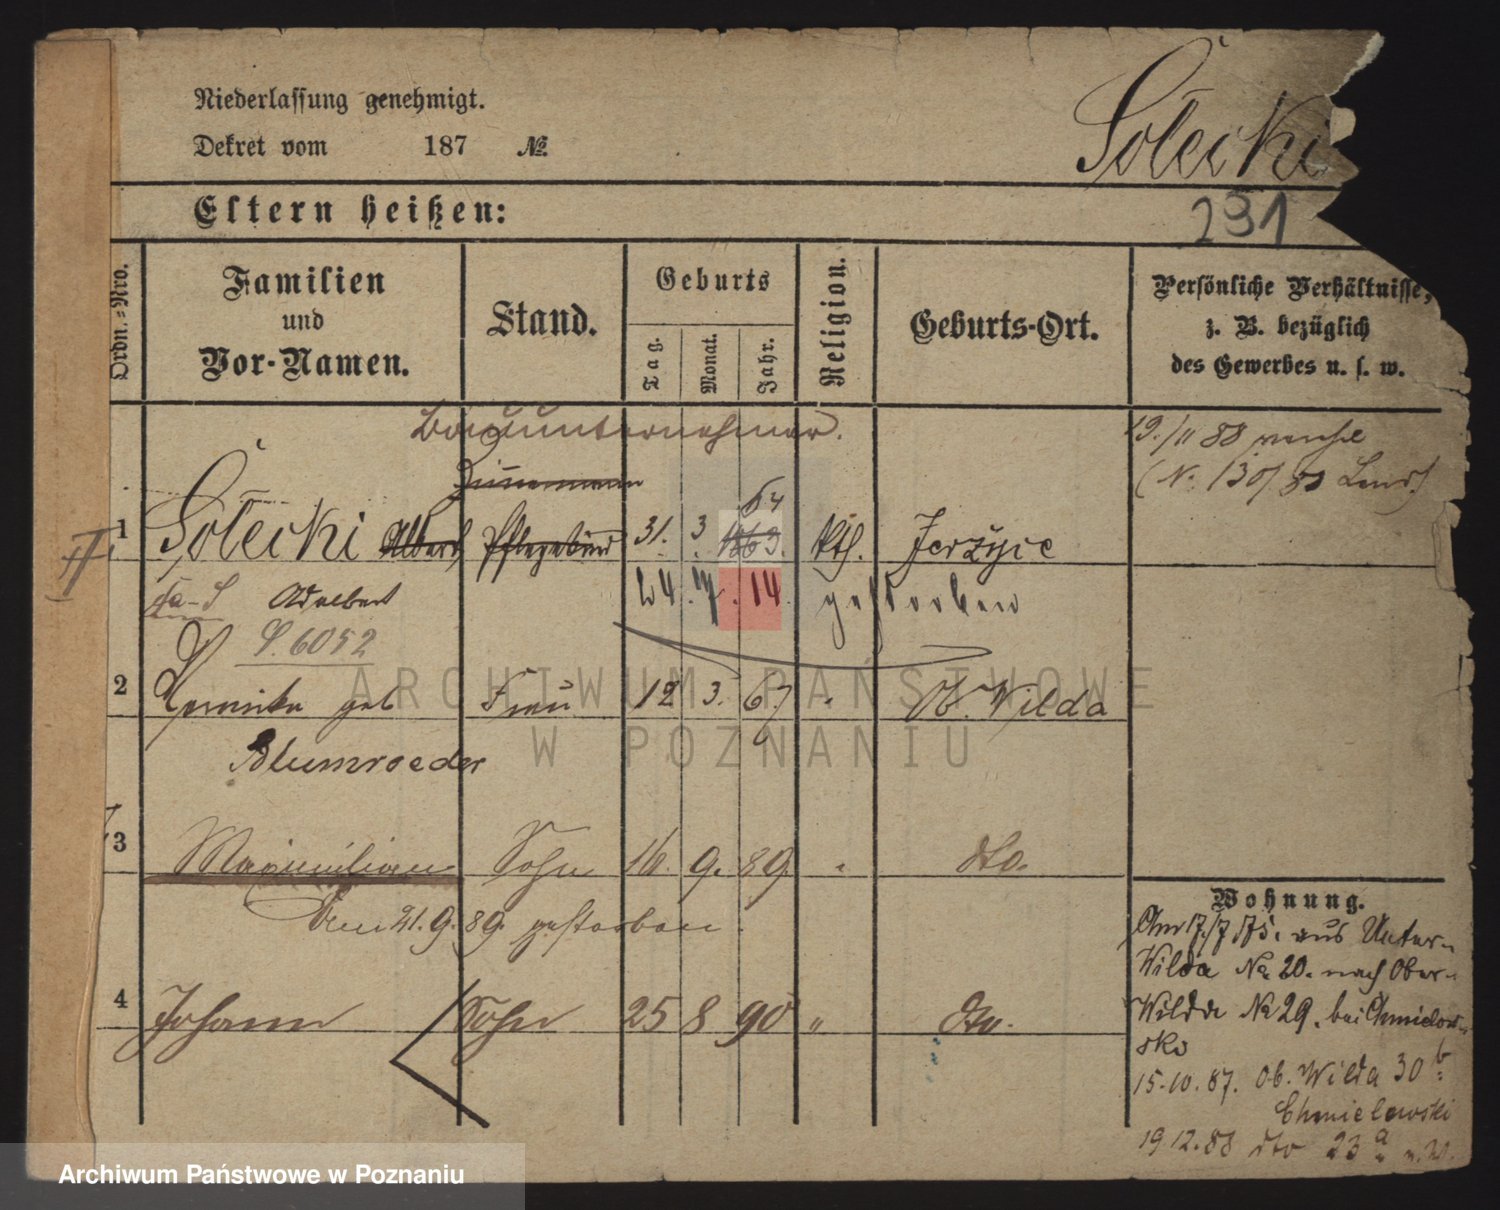 Niederlassung genehmigt.
Dekret vom 187 №
Gołecki
291
Eltern heißen:
Ordn.-Nro.
Familien und Vor-Namen.
Stand.
Geburts
Tag.
Monat.
Jahr.
Religion.
Geburts-Ort.
Persönliche Verhältnisse,
z. B. bezüglich
des Gewerbes u. s. w.
Bauunternehmer.
19./11 88
(N. 130/88
Zimmermann
64
1 Gołecki Albert Pflegekind 31. 3 1863. kth. Jerzyce
II
Adalbert
24. 14 gestorben
S. 6052
2 geb Frau 12 3. 67 Ob. Wilda
Blumroeder
3 Maximilian Sohn 16. 9. 89. " dto.
den 21. 9. 89. gestorben.
4 Johann Sohn 25 8 90 " dto.
Wohnung.
Am 17./7 75. aus Unter-
Wilda No 20. nach Ober-
Wilda No 29. bei Chmielow-
ski
15.10.87. Ob. Wilda 30 b.
Chmielewski
19 12.88 dto 23 a
ARCHIWUM PAŃSTWOWE
W POZNANIU
Archiwum Państwowe w Poznaniu